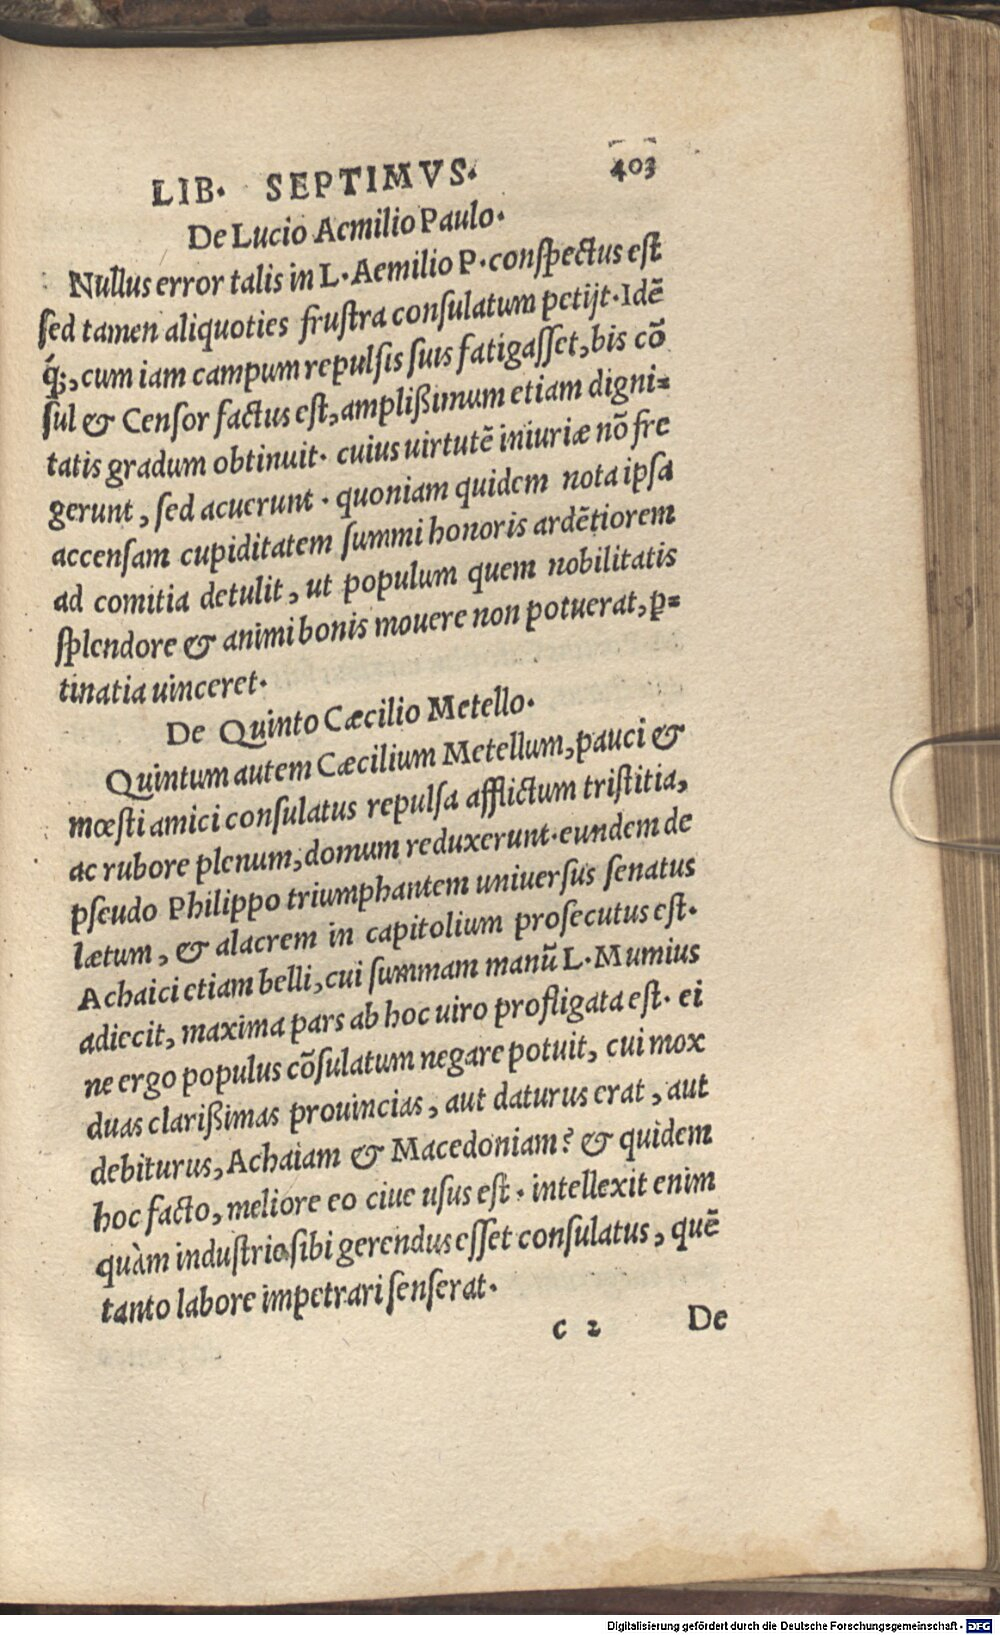 LIB. SEPTIMVS. 403
De Lucio Aemilio Paulo.
Nullus error talis in L. Aemilio P. conſpectus eſt
ſed tamen aliquoties fruſtra conſulatum petijt. Idē
q́;, cum iam campum repulſis ſuis fatigaſſet, bis cō
ſul & Cenſor factus eſt, ampliſſimum etiam digni=
tatis gradum obtinuit. cuius uirtutē iniuriæ nō fre
gerunt, ſed acuerunt. quoniam quidem nota ipſa
accenſam cupiditatem ſummi honoris ardētiorem
ad comitia detulit, ut populum quem nobilitatis
ſplendore & animi bonis mouere non potuerat, ꝑ=
tinatia uinceret.
De Quinto Cæcilio Metello.
Quintum autem Cæcilium Metellum, pauci &
mœſti amici conſulatus repulſa afflictum triſtitia,
ac rubore plenum, domum reduxerunt. eundem de
pſeudo Philippo triumphantem uniuerſus ſenatus
lætum, & alacrem in capitolium proſecutus eſt.
Achaici etiam belli, cui ſummam manū L. Mumius
adiecit, maxima pars ab hoc uiro profligata eſt. ei
ne ergo populus cōſulatum negare potuit, cui mox
duas clariſſimas prouincias, aut daturus erat, aut
debiturus, Achaiam & Macedoniam? & quidem
hoc facto, meliore eo ciue uſus eſt. intellexit enim
quàm induſtrio ſibi gerendus eſſet conſulatus, quē
tanto labore impetrari ſenſerat.
c 2 De
Digitalisierung gefördert durch die Deutsche Forschungsgemeinschaft - DFG